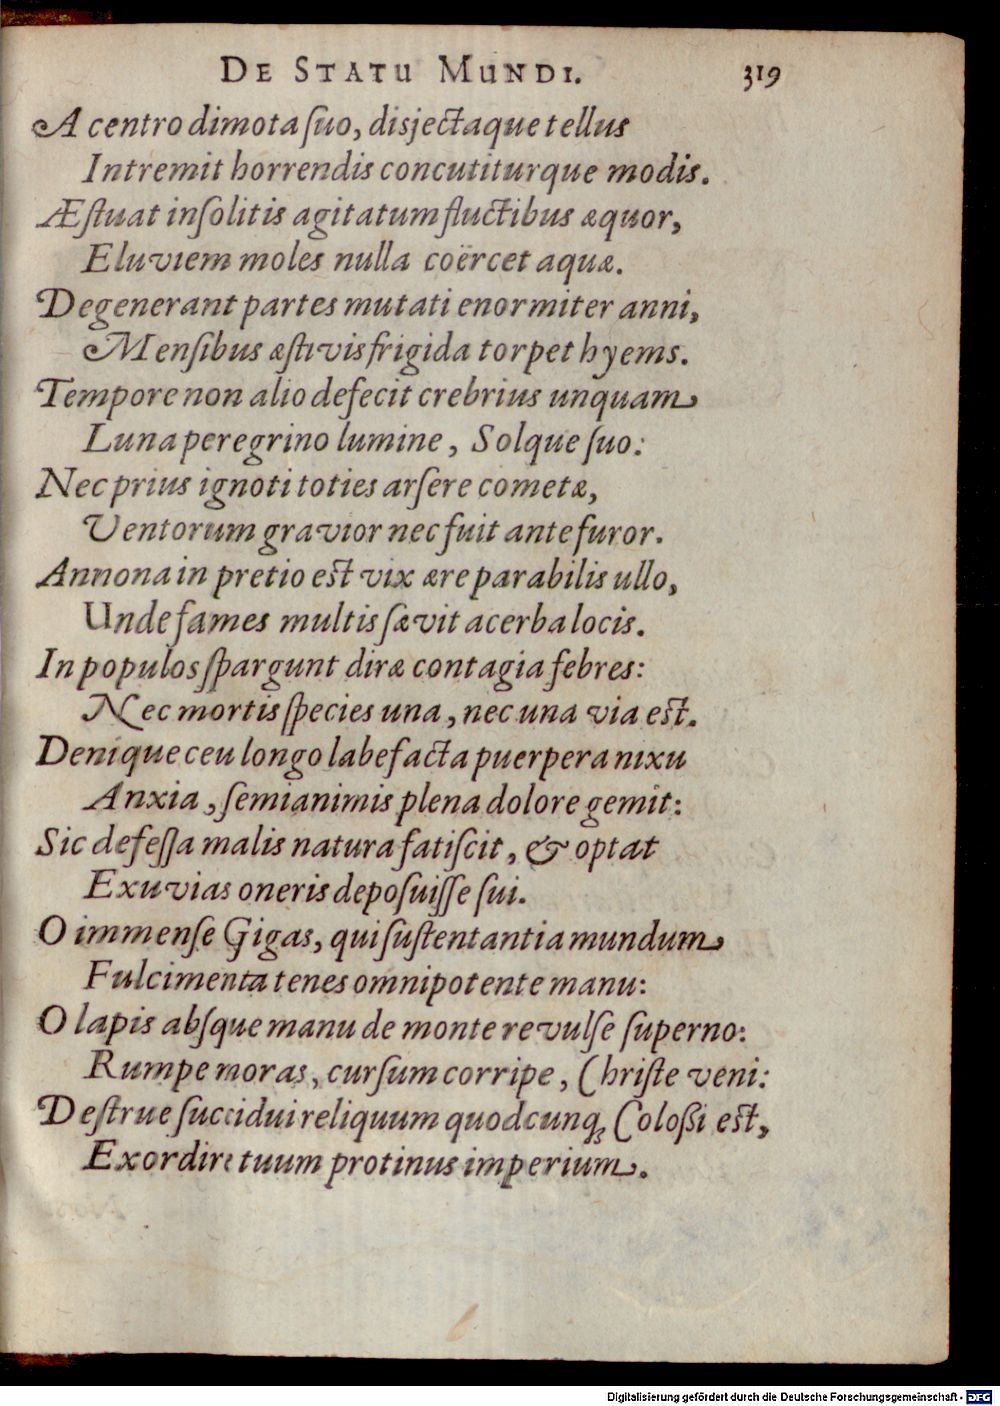 DE STATU MUNDI. 319
A centro dimota ſuo, disjectaque tellus
Intremit horrendis concutiturque modis.
Æſtuat inſolitis agitatum fluctibus æquor,
Eluviem moles nulla coërcet aquæ.
Degenerant partes mutati enormiter anni,
Menſibus æſtivis frigida torpet hyems.
Tempore non alio defecit crebrius unquam
Luna peregrino lumine, Solque ſuo:
Nec prius ignoti toties arſere cometæ,
Ventorum gravior nec fuit ante furor.
Annona in pretio eſt vix ære parabilis ullo,
Unde fames multis ſævit acerba locis.
In populos ſpargunt diræ contagia febres:
Nec mortis ſpecies una, nec una via eſt.
Denique ceu longo labefacta puerpera nixu
Anxia, ſemianimis plena dolore gemit:
Sic defeſſa malis natura fatiſcit, & optat
Exuvias oneris depoſuiſſe ſui.
O immenſe Gigas, qui ſuſtentantia mundum
Fulcimenta tenes omnipotente manu:
O lapis abſque manu de monte revulſe ſuperno:
Rumpe moras, curſum corripe, Chriſte veni:
Deſtrue ſuccidui reliquum quodcunq; Coloßi eſt,
Exordire tuum protinus imperium.
Digitalisierung gefördert durch die Deutsche Forschungsgemeinschaft - DFG